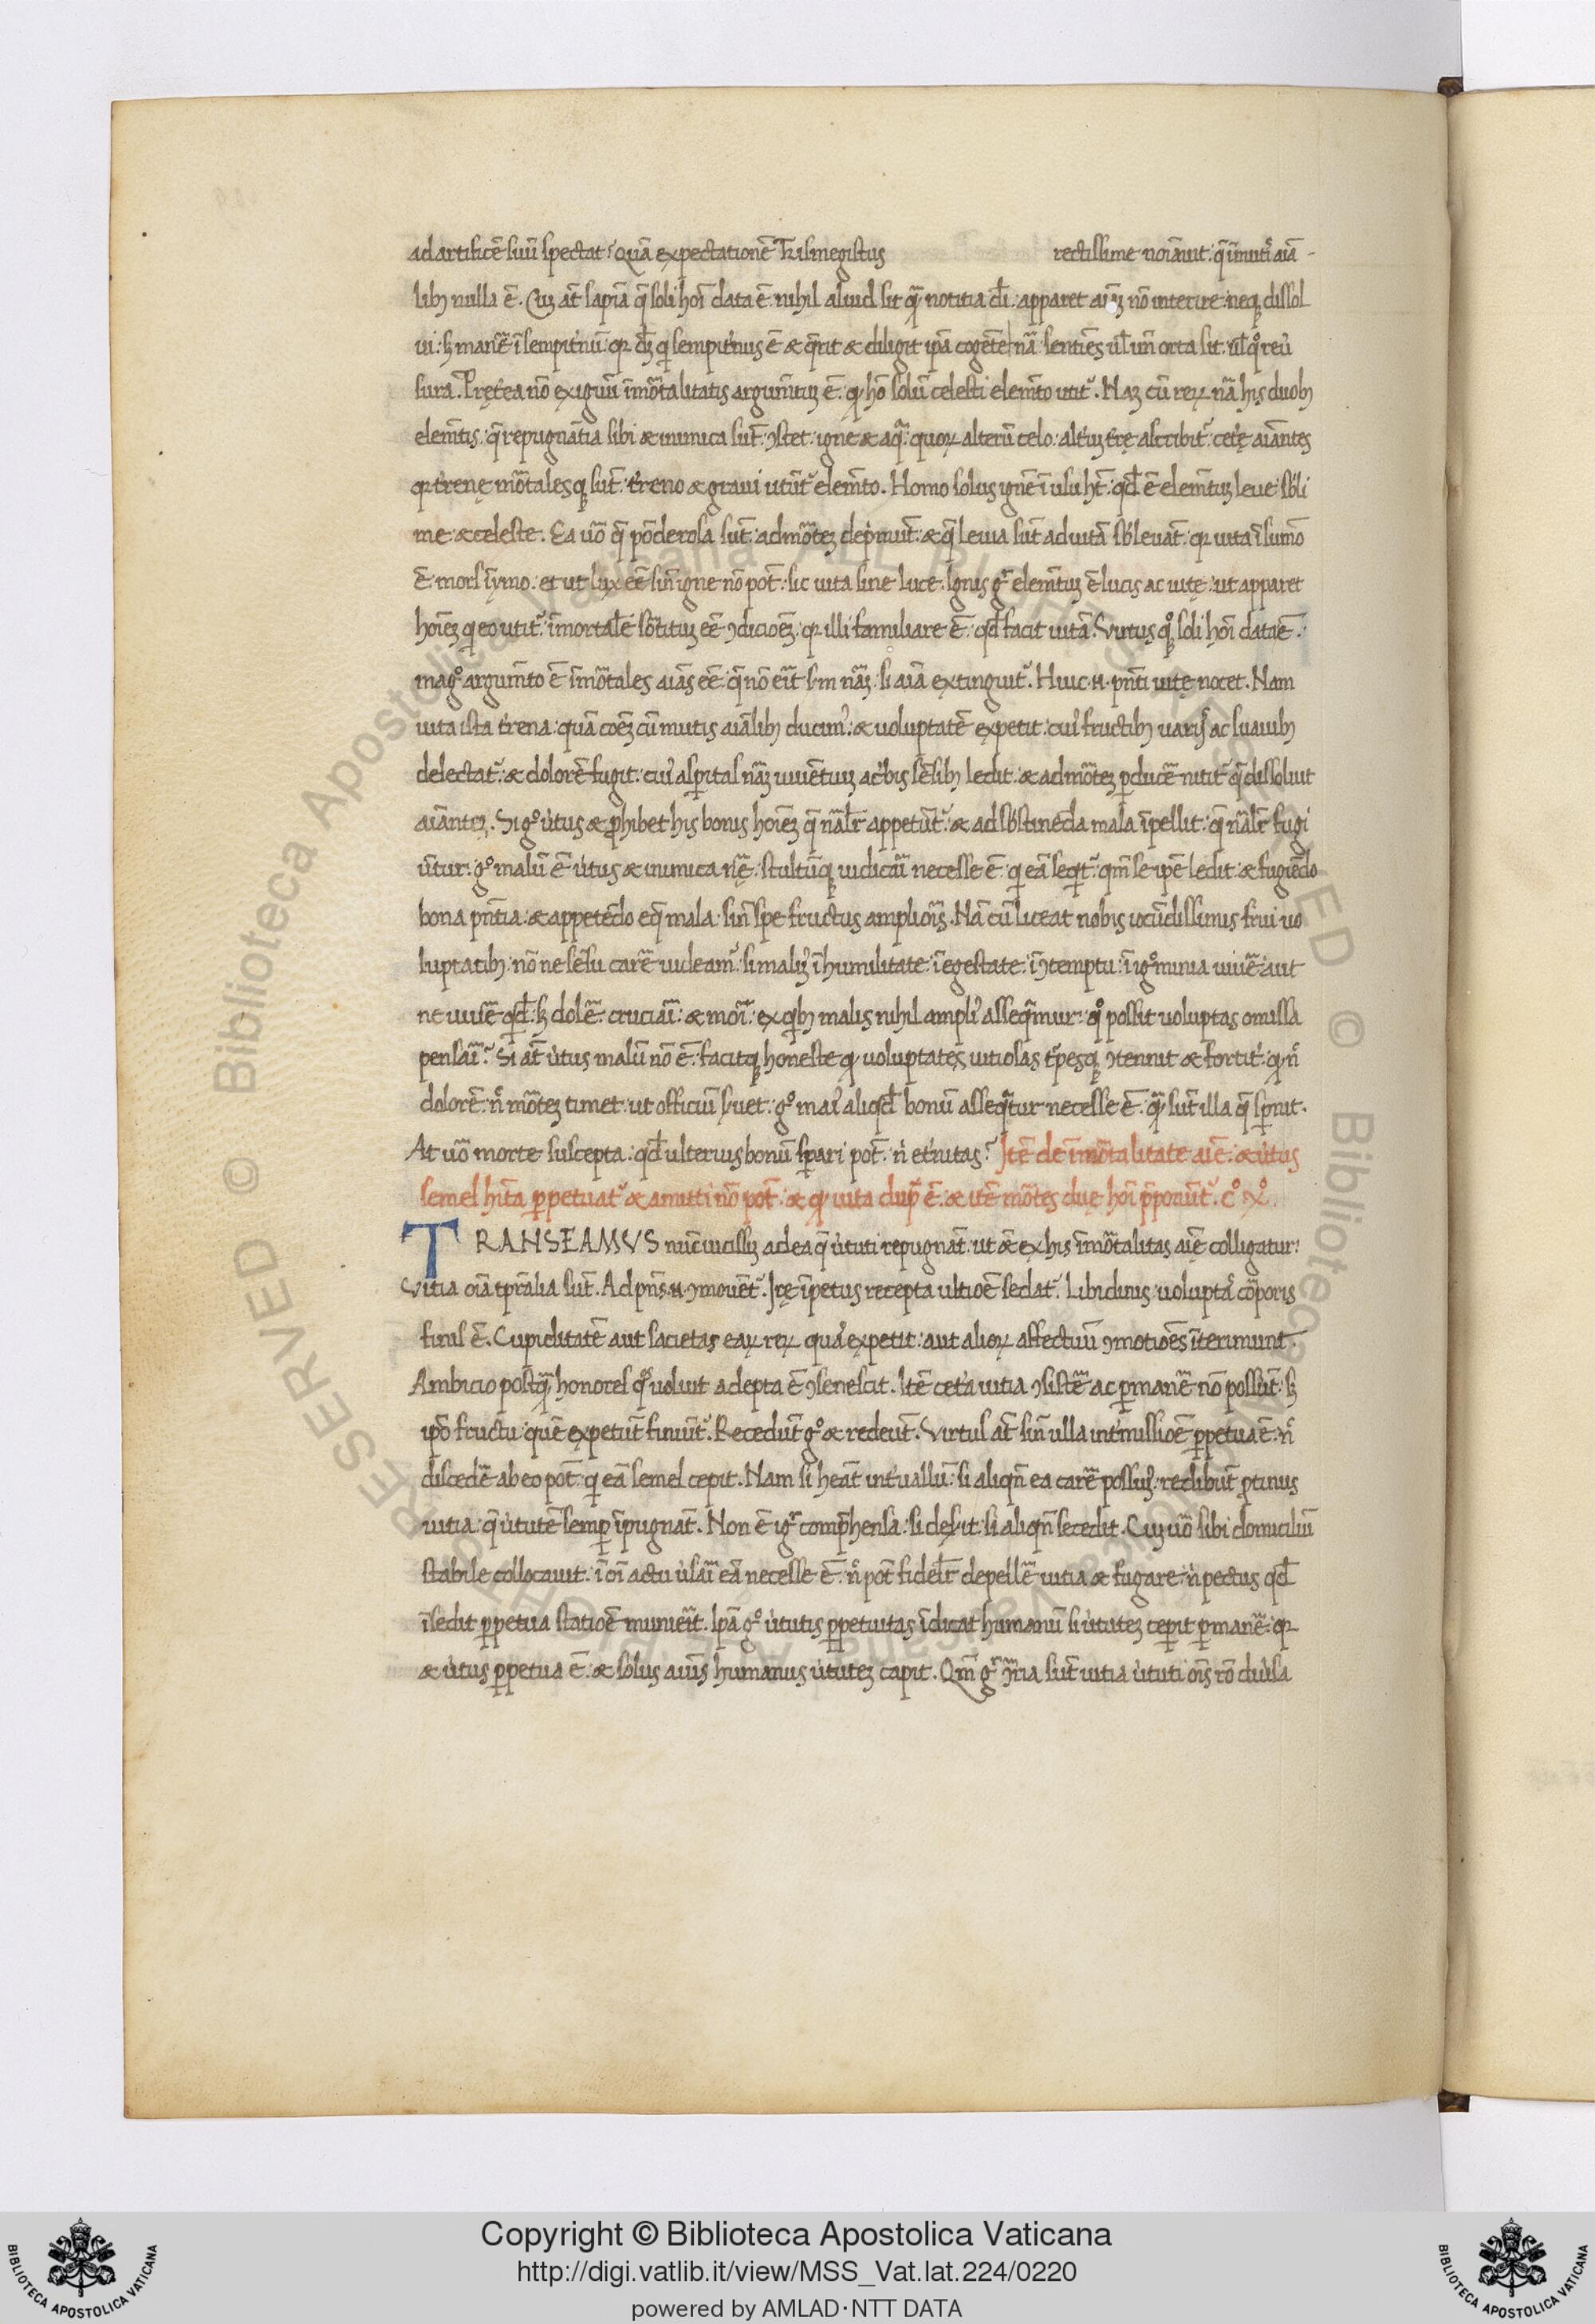 ad artificē suū spectat? Quā expectationē Trismegistus rectissime noīauit: q̄ ī mutis aīa-
libꝫ nulla ē. Cuꝫ aūt sapīa q̄ soli hoī data ē. nihil aliud sit q̄ꝫ notitia dī: apparet aīaꝫ nō interire: neqꝫ dissol
ui: sꝫ manē ī sempit'nū: qꝛ dꝫ q sempit'nus ē & q̄rit & diligit ipā cogēte nā: sentiēs ul̄ uñ orta sit: ul̄ qͦ reū
sura. Pręt'ea nō exiguū īmortalitatis argum̄tuꝫ ē: qꝫ hō solū celesti elem̄to utit'. Naꝫ cū reꝝ nā his duobꝫ
elem̄tis: q̄ repugnātia sibi & inimica sūt: ꝯstet: igne & aqᷓ: quoꝝ alterū celo: alt'uꝫ t'rę ascribit': cet'ę aīantes
qꝛ t'renę mōtalesqꝫ sūt: t'reno & graui utūt' elem̄to. Homo solus ignē ī usu hꝫ: qd̄ ē elem̄tuꝫ leue sb̄li
me & celeste. Ea ūo q̄ pōderosa sūt: ad mōteꝫ dep̄mūt: & q̄ leuia sūt ad uitā sb̄leuāt: qꝛ uita ī sūmo
ē: mors ī ymo: et ut lux eē sin̄ igne nō pōt: sic uita sine luce. Ignis gͦ elem̄tuꝫ ē lucis ac uitę: ut apparet
hoīeꝫ q eo utit': īmortalē sōtituꝫ eē ꝯdicioēꝫ: qꝛ illi familiare ē: qd̄ facit uitā. Virtus qꝫ soli hoī data ē:
magͦ argum̄to ē īmōtales aīas eē: q̄ nō eīt s'm nāꝫ: si aīa extinguit'. Huic .n. pn̄ti uitę nocet. Nam
uita ista t'rena: quā cōeꝫ cū mutis aīalibꝫ ducim': & uoluptatē expetit: cui' fructibꝫ uarijs ac suauibꝫ
delectat': & dolorē fugit: cui' asp̄itas nāꝫ uiuētuꝫ ac'bis sēsibꝫ ledit: & ad mōteꝫ ꝑducē nitit' q̄ dissoluit
aīanteꝫ. Si gͦ ū'tus & ꝓhibet his bonis hoīeꝫ q̄ nālr̄ appetūt': & ad sb̄stinēda mala īpellit: q̄ nālr̄ fugi
ūtur: gͦ malū ē ū'tus & inimica nę̄: stultūqꝫ iudicāi necesse ē: q eā seqt': qm̄ se ipē ledit: & fugiēdo
bona pn̄tia: & appetēdo eqꝫ mala: sin̄ spe fructus ampliōis. Nā cū liceat nobis iocūdissimis frui uo
luptatibꝫ: nōne sēsu carē uideam': si malim' ī humilitate: ī egestate: ī ꝯtemptu: ī igͦminia uiuē: aut
ne uiuē qd̄: sꝫ dolē: cruciāi: & mori: ex qbꝫ malis nihil ampli' asseq̄mur: qͦ possit uoluptas omissa
pensāi? Si aūt ū'tus malū nō ē: facitqꝫ honeste qꝫ uoluptates uitiosas t'pesqꝫ ꝯtennit & fortit': qꝫ n̄
dolorē: n̄ mōteꝫ timet: ut officiū s'uet: gͦ mai' aliqd̄ bonū asseqᷓtur necesse ē: q̄ꝫ sūt illa q̄ sp̄nit.
At ūo morte suscepta: qd̄ ulterius bonū sp̄ari pōt: n̄ et'nitas? Itē de īmōtalitate aīę: & ū'tus
semel hīta ꝑpetuat' & amitti nō pōt: & qꝫ uita dup̄ ē: & itē mōtes duę hoī p̄ponūt'. Cͦ Xͦ.
TRANSEAMVS nūc uicissiꝫ ad ea q̄ ū'tuti repugnāt: ut ēt ex his īmōtalitas aīę colligatur:
Vitia oīa tp̄ralia sūt. Ad pn̄s .n. ꝯmouēt'. Irę īpetus recepta ultiōe sedat'. Libidinis uoluptas corporis
finis ē. Cupiditatē aut sacietas eaꝝ reꝝ quas expetit: aut alioꝝ affectuū ꝯmotiōes īterimunt.
Ambicio postqᷓ honores qͦs uoluit adepta ē ꝯsenescit. Itē cet'a uitia ꝯsistē ac ꝑmanē nō possūt: sꝫ
ipō fructu quē expetūt finiūt'. Recedūt gͦ & redeūt. Virtus aūt sin̄ ulla int'missiōe ꝑpetua ē: n̄
discedē ab eo pōt: q eā semel cepit. Nam si hēat int'uallū: si aliqn̄ ea carē possum': redibūt ꝓtinus
uitia: q̄ ū'tutē semꝑ īpugnāt. Non ē igͦ comp̄hensa: si des'it: si aliqn̄ secedit. Cuꝫ ūo sibi domiciliū
stabile collocauit: ī oī actu u'sāi eā necesse ē: n̄ pōt fidelr̄ depellē uitia & fugare: n̄ pectus qd̄
īsedit ꝑpetua statiōe munieīt. Ipā gͦ ū'tutis ꝑpetuitas īdicat humanū si ū'tuteꝫ cepit ꝑmanē: qꝛ
& ū'tus ꝑpetua ē: & solus aīus humanus ū'tuteꝫ capit. Qm̄ gͦ ꝯtria sūt uitia ū'tuti ois rō diu'sa
Copyright © Biblioteca Apostolica Vaticana
http://digi.vatlib.it/view/MSS_Vat.lat.224/0220
powered by AMLAD·NTT DATA